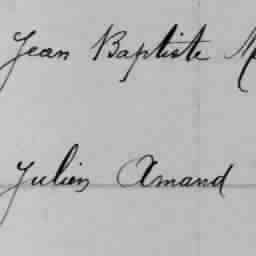 Jean Baptiste
Julien Amand